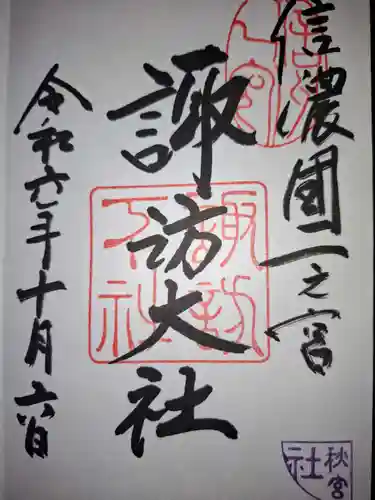 信濃國一之宮
諏訪大社
令和六年十月六日
諏訪
大社
秋宮
社